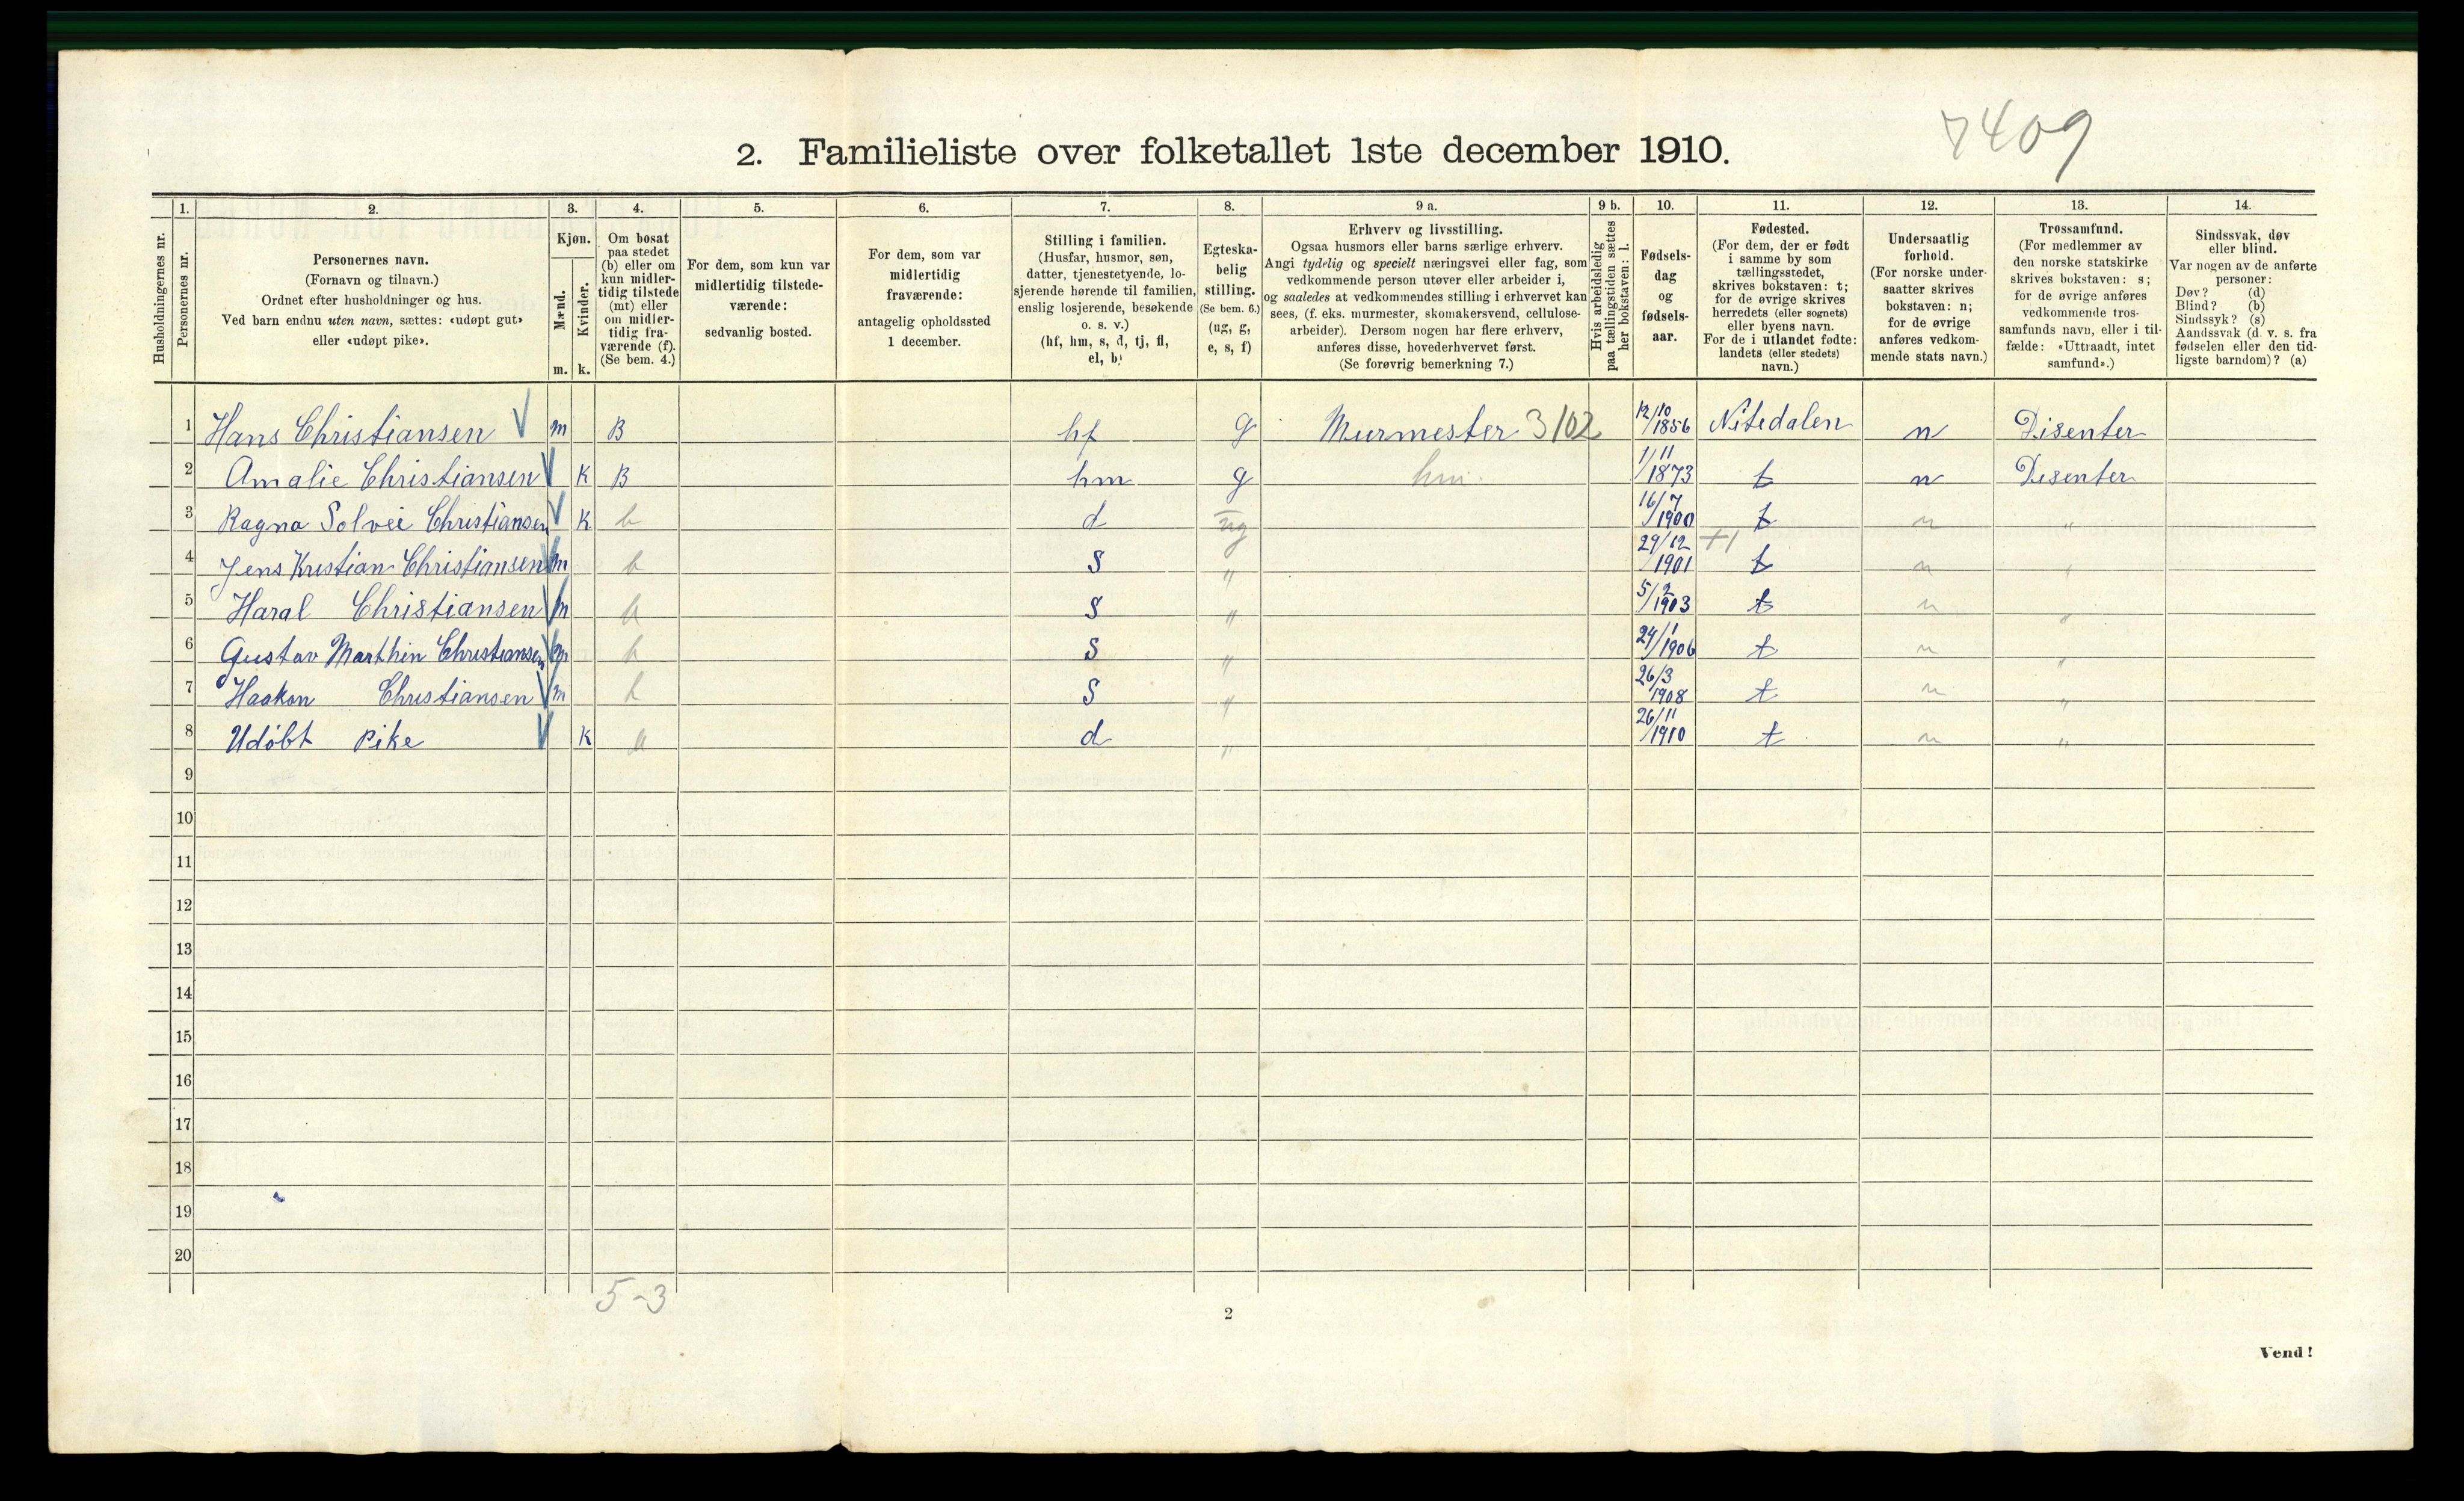 7409
2. Familieliste over folketallet 1ste december 1910.
Husholdningernes nr.
1.
Personernes nr.
2.
Personernes navn.
(Fornavn og tilnavn.)
Ordnet efter husholdninger og hus.
Ved barn endnu uten navn, sættes: «udøpt gut»
eller «udøpt pike».
3.
Kjøn.
Mænd.
Kvinder.
m. k.
4.
Om bosat
paa stedet
(b) eller om
kun midler-
tidig tilstede
(mt) eller
om midler-
tidig fra-
værende (f).
(Se bem. 4.)
5.
For dem, som kun var
midlertidig tilstede-
værende:
sedvanlig bosted.
6.
For dem, som var
midlertidig
fraværende:
antagelig opholdssted
1 december.
7.
Stilling i familien.
(Husfar, husmor, søn,
datter, tjenestetyende, lo-
sjerende hørende til familien,
enslig losjerende, besøkende
o. s. v.)
(hf, hm, s, d, tj, fl,
el, b)
8.
Egteska-
belig
stilling.
(Se bem. 6.)
(ug, g,
e, s, f)
9 a.
Erhverv og livsstilling.
Ogsaa husmors eller barns særlige erhverv.
Angi tydelig og specielt næringsvei eller fag, som
vedkommende person utøver eller arbeider i,
og saaledes at vedkommendes stilling i erhvervet kan
sees, (f. eks. murmester, skomakersvend, cellulose-
arbeider). Dersom nogen har flere erhverv,
anføres disse, hovederhvervet først.
(Se forøvrig bemerkning 7.)
9 b.
Hvis arbeidsledig
paa tællingstiden sættes
her bokstaven: l.
10.
Fødsels-
dag
og
fødsels-
aar.
11.
Fødested.
(For dem, der er født
i samme by som
tællingsstedet,
skrives bokstaven: t;
for de øvrige skrives
herredets (eller sognets)
eller byens navn.
For de i utlandet fødte:
landets (eller stedets)
navn.)
12.
Undersaatlig
forhold.
(For norske under-
saatter skrives
bokstaven: n;
for de øvrige
anføres vedkom-
mende stats navn.)
13.
Trossamfund.
(For medlemmer av
den norske statskirke
skrives bokstaven: s;
for de øvrige anføres
vedkommende tros-
samfunds navn, eller i til-
fælde: «Uttraadt, intet
samfund».)
14.
Sindssvak, døv
eller blind.
Var nogen av de anførte
personer:
Døv? (d)
Blind? (b)
Sindssyk? (s)
Aandssvak (d. v. s. fra
fødselen eller den tid-
ligste barndom)? (a)
1 Hans Christiansen m B hf g Murmester 3/02 12/10 1856 Nitedalen n Disenter
2 Amalie Christiansen K B hm g hm. 1/11 1873 t n Disenter
3 Ragna Solvei Christiansen K b d ug 16/7 1900 t n "
4 Jens Kristian Christiansen m b S " 29/12 1901 t n "
5 Haral Christiansen m b S " 5/2 1903 t n "
6 Gustav Marthin Christiansen m b S " 24/1 1906 t n "
7 Haakon Christiansen m b S " 26/3 1908 t n "
8 Udøbt Pike K b d " 26/11 1910 t n "
9
10
11
12
13
14
15
16
17
18
19
20
5-3
2
Vend!